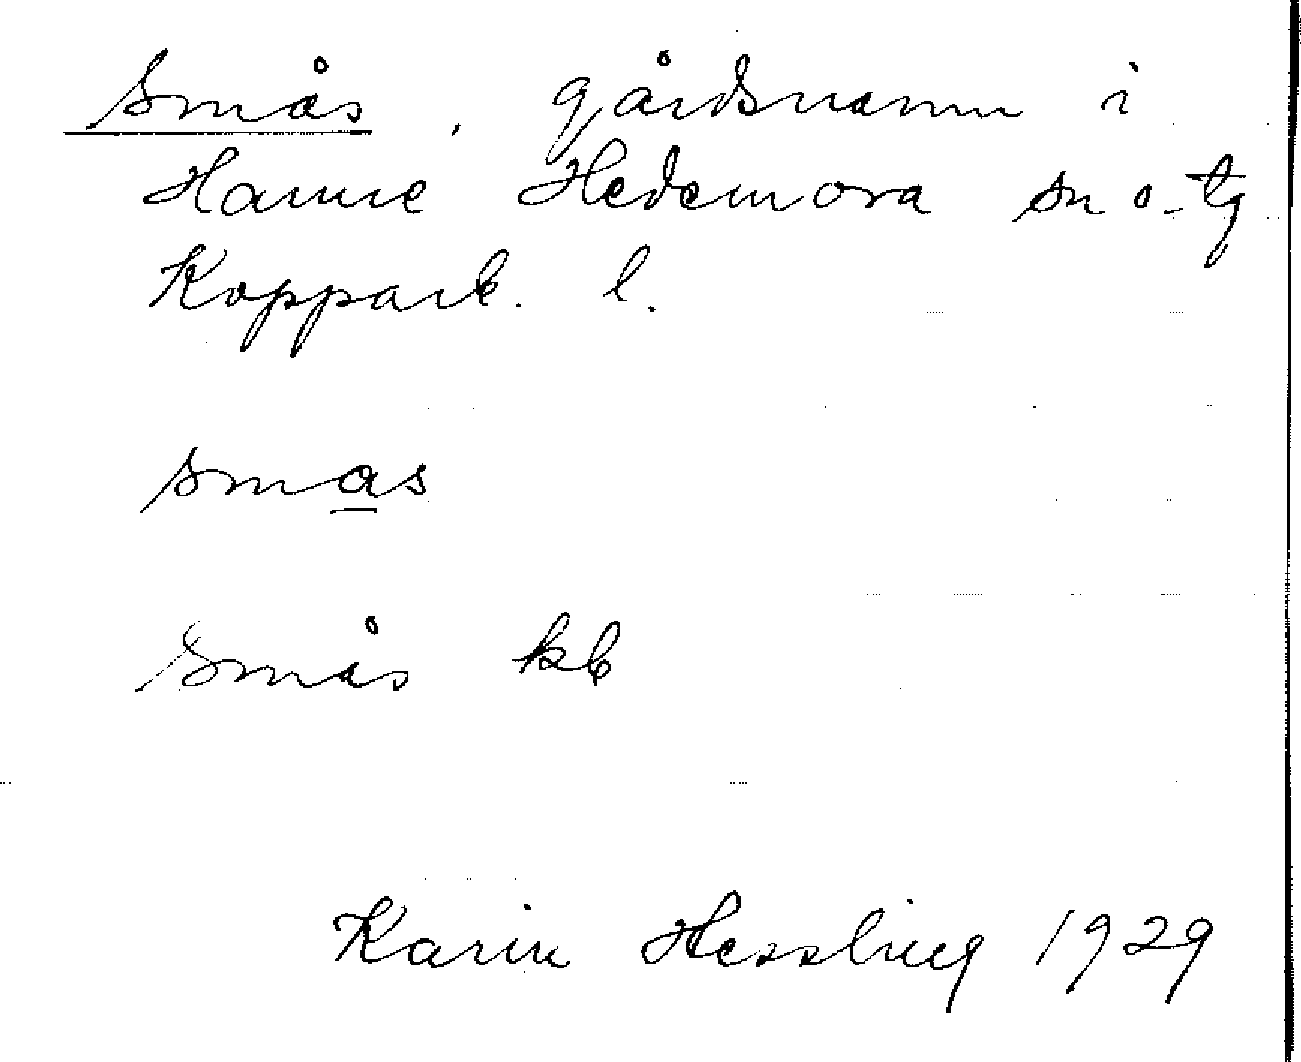 Smås, gårdsnamn i
Hamre Hedemora sn o. tg
Kopparb. l.
smas
Smås kb
Karin Hessling 1929